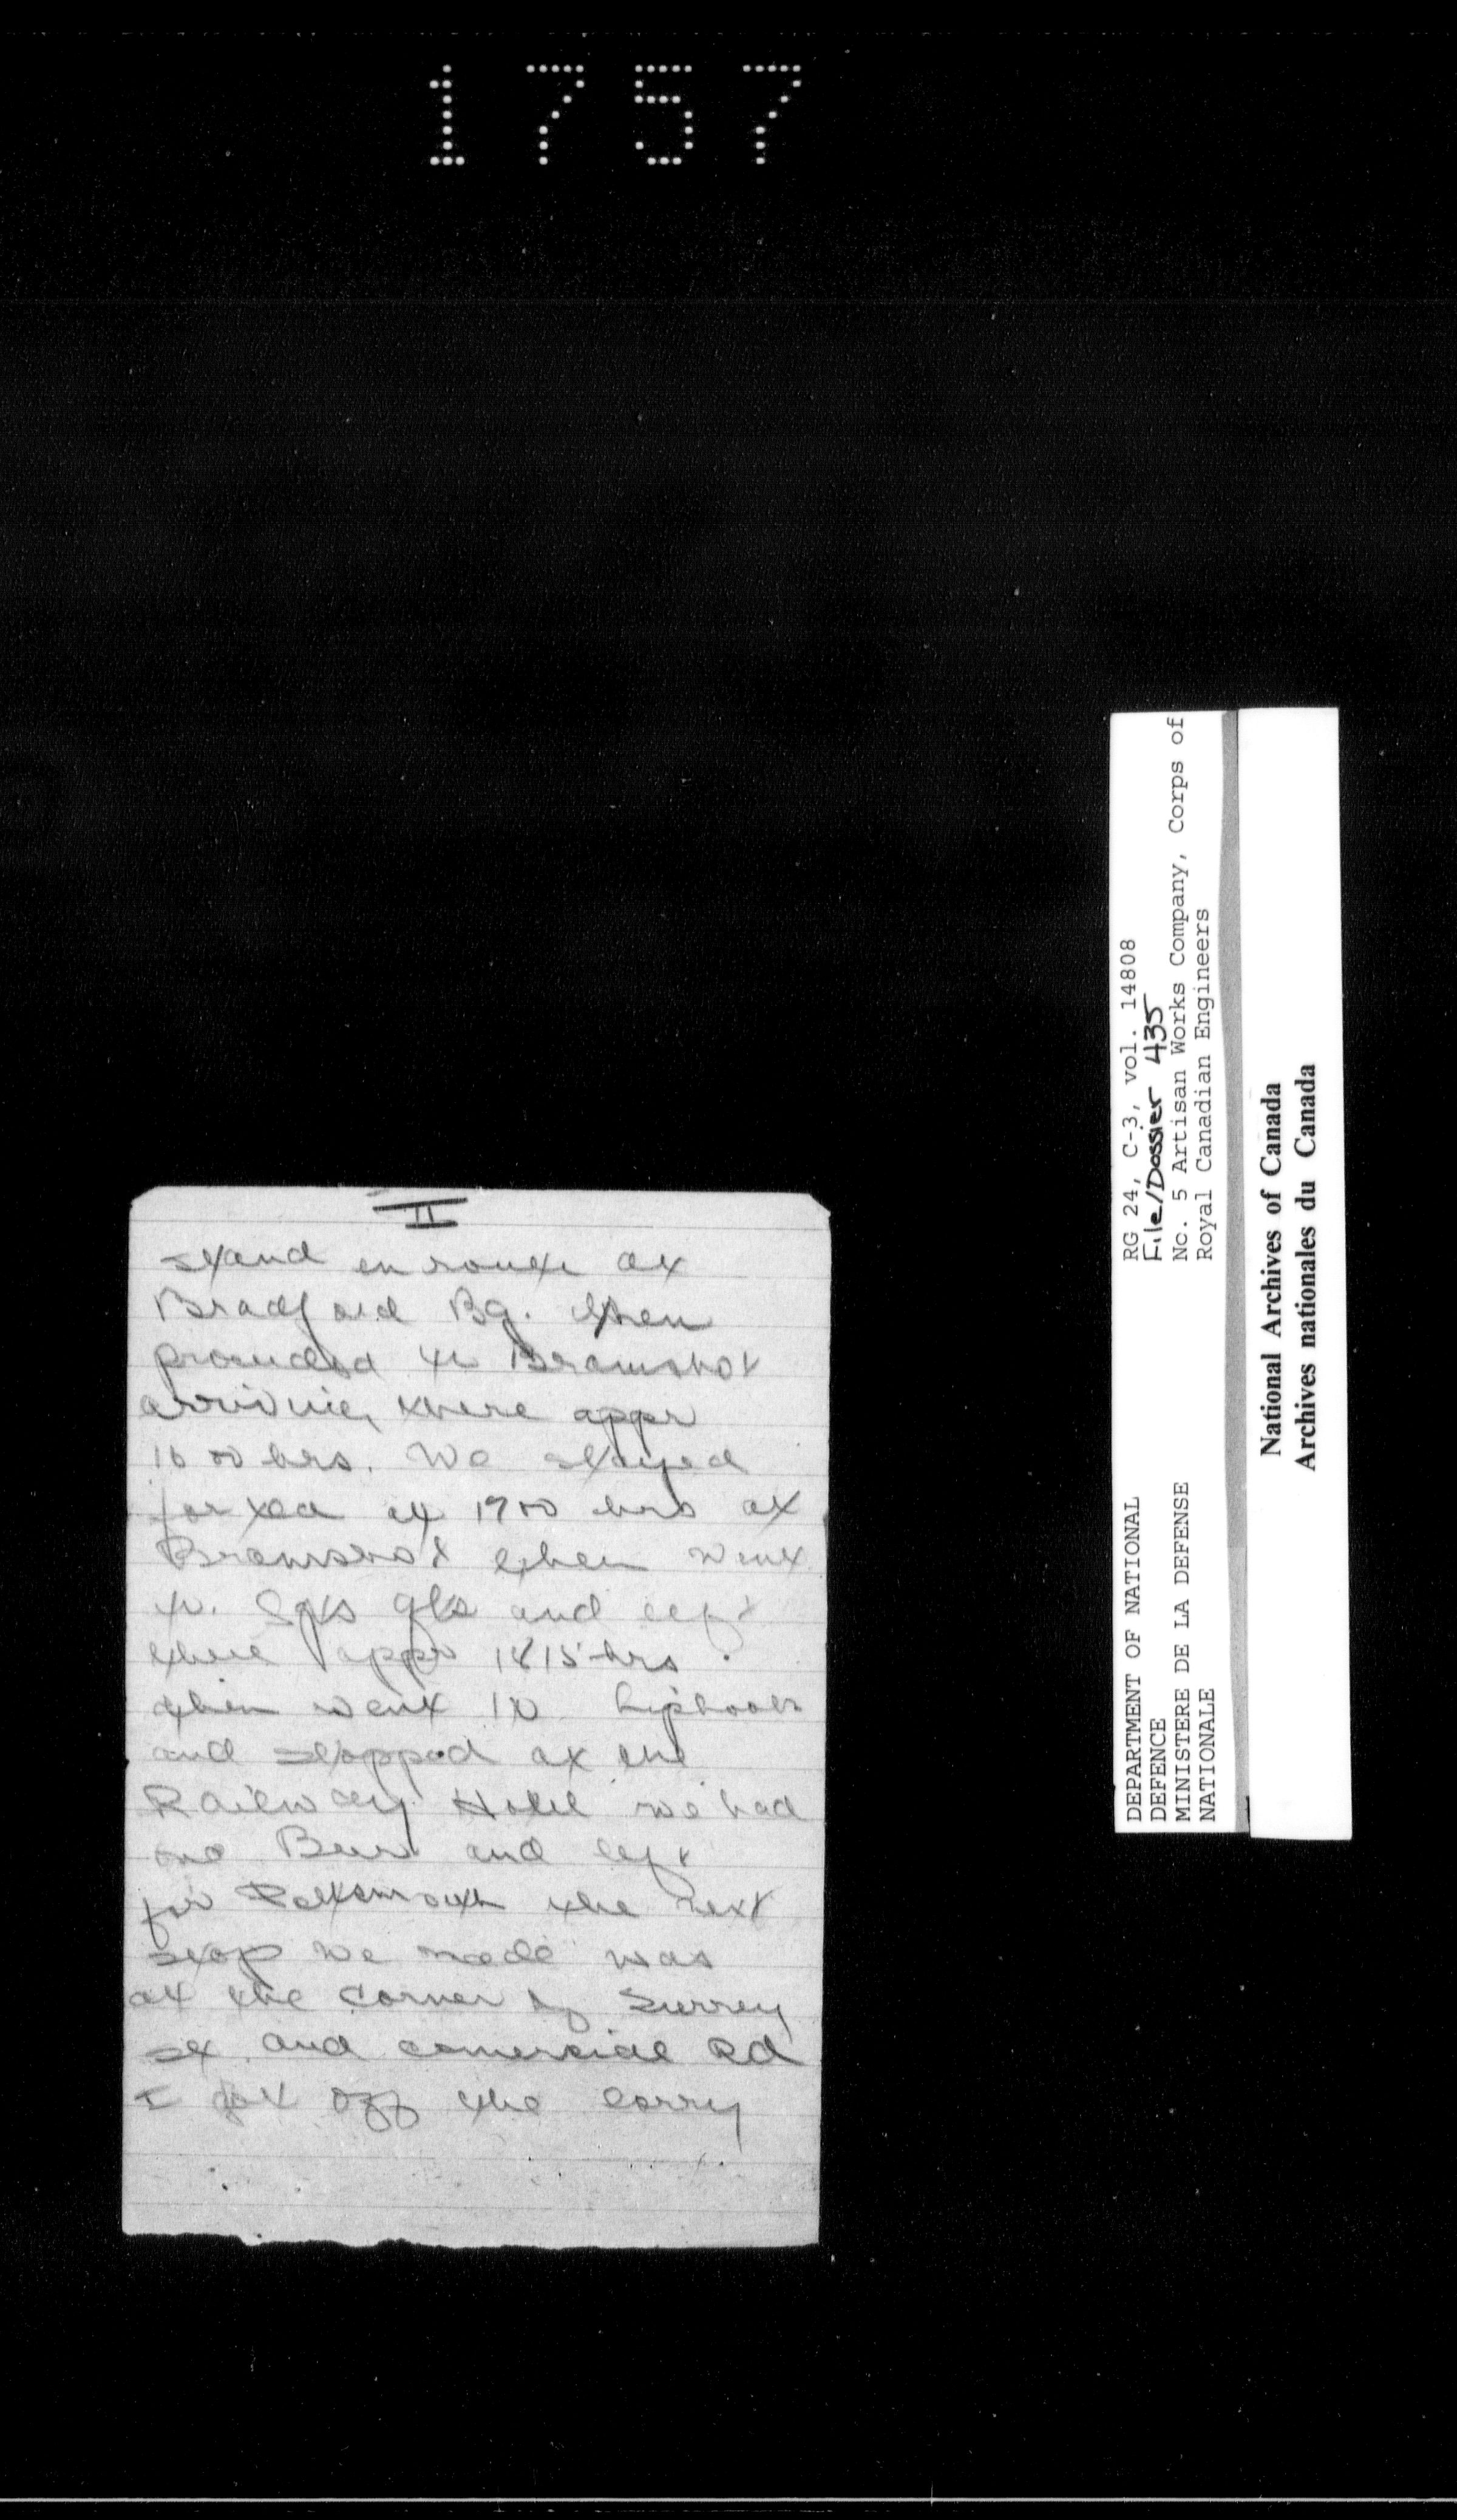 1757
II
stand en route at
Bradford Bg. then
proceeded to Bramshot
arriving there appr
1600 hrs. We stayed
for tea at 1700 hrs at
Bramshot then went
to. Sgts and left
there appr 1815 hrs.
then went to Liphook
and stopped at the
Railway Hotel we had
one Beer and left
for Portsmouth the next
stop we made was
at the corner of Surrey
st. and comercial Rd
I got off the lorry
RG 24, C-3, vol. 14808
File/Dossier 435
No. 5 Artisan Works Company, Corps of
Royal Canadian Engineers
DEPARTMENT OF NATIONAL
DEFENCE
MINISTERE DE LA DEFENSE
NATIONALE
National Archives of Canada
Archives nationales du Canada